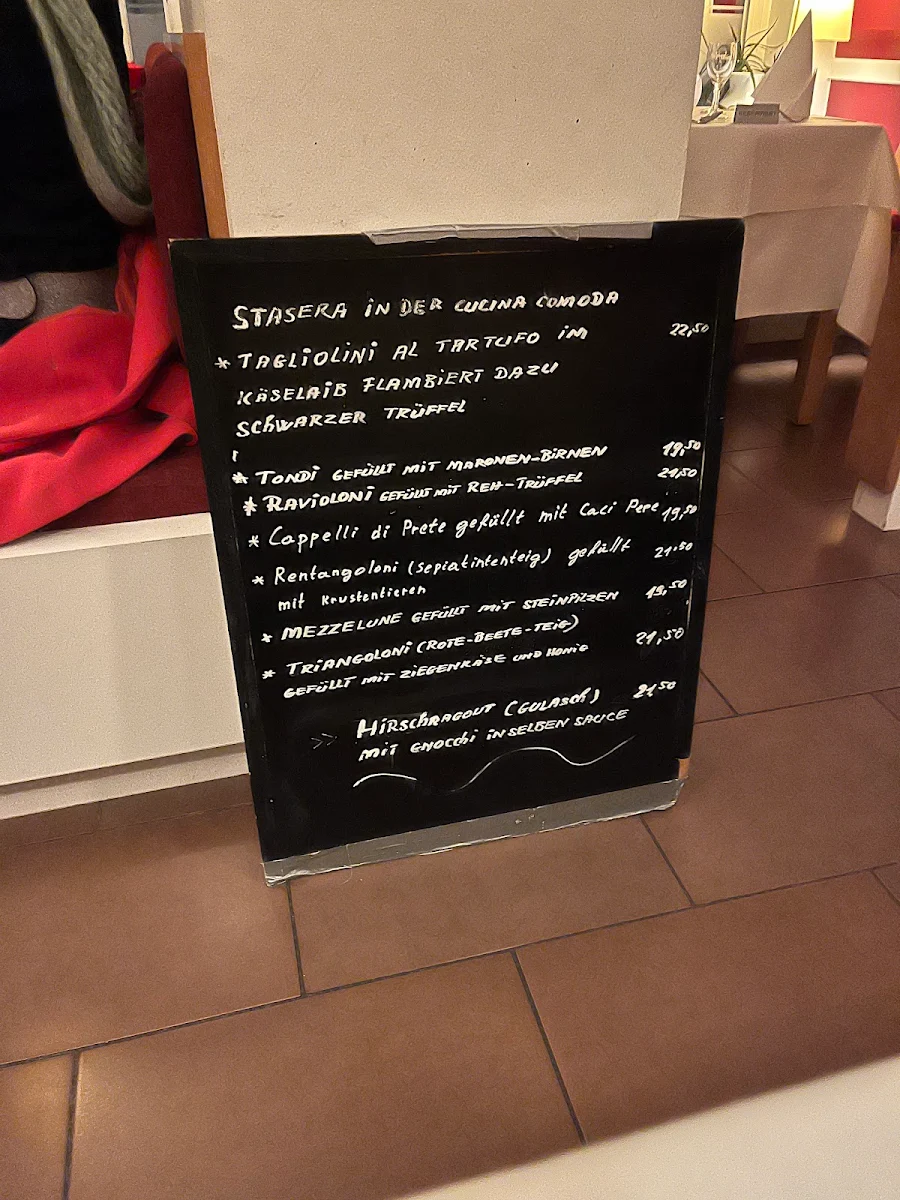 STASERA IN DER CUCINA COMODA
* TAGLIOLINI AL TARTUFO IM 22,50
KÄSELAIB FLAMBIERT DAZU
SCHWARZER TRÜFFEL
* TONDI GEFÜLLT MIT MARONEN-BIRNEN 19,50
* RAVIOLONI GEFÜLLT MIT REH-TRÜFFEL 21,50
* Cappelli di Prete gefüllt mit Caci Pere 19,50
* Rentangoloni (sepiatintenteig) gefüllt 21.50
mit Krustentieren
* MEZZELUNE GEFÜLLT MIT STEINPILZEN 19,50
* TRIANGOLONI (ROTE-BEETE-TEIG) 21,50
GEFÜLLT MIT ZIEGENKÄSE UND HONIG
>> HIRSCHRAGOUT (GULASCH) 21.50
MIT GNOCCHI IN SELBEN SAUCE